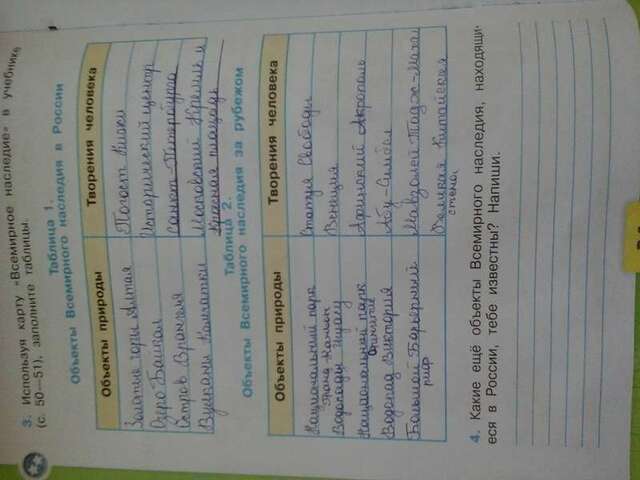 3. Используя карту «Всемирное наследие» в учебнике
(с. 50—51), заполните таблицы.
Таблица 1.
Объекты Всемирного наследия в России
Объекты природы Творения человека
Золотые горы Алтая Погост Кижи
Озеро Байкал Исторический центр
Остров Врангеля Санкт-Петербурга
Вулканы Камчатки Московский Кремль и
Красная площадь
Таблица 2.
Объекты Всемирного наследия за рубежом
Объекты природы Творения человека
Национальный парк Статуя Свободы
Гранд-Каньон
Водопады Игуасу Венеция
Национальный парк Афинский Акрополь
Водопад Виктория Абу-Симбел
Большой Барьерный Мавзолей Тадж-Махал
риф Великая Китайская
стена
4. Какие ещё объекты Всемирного наследия, находящи-
еся в России, тебе известны? Напиши.